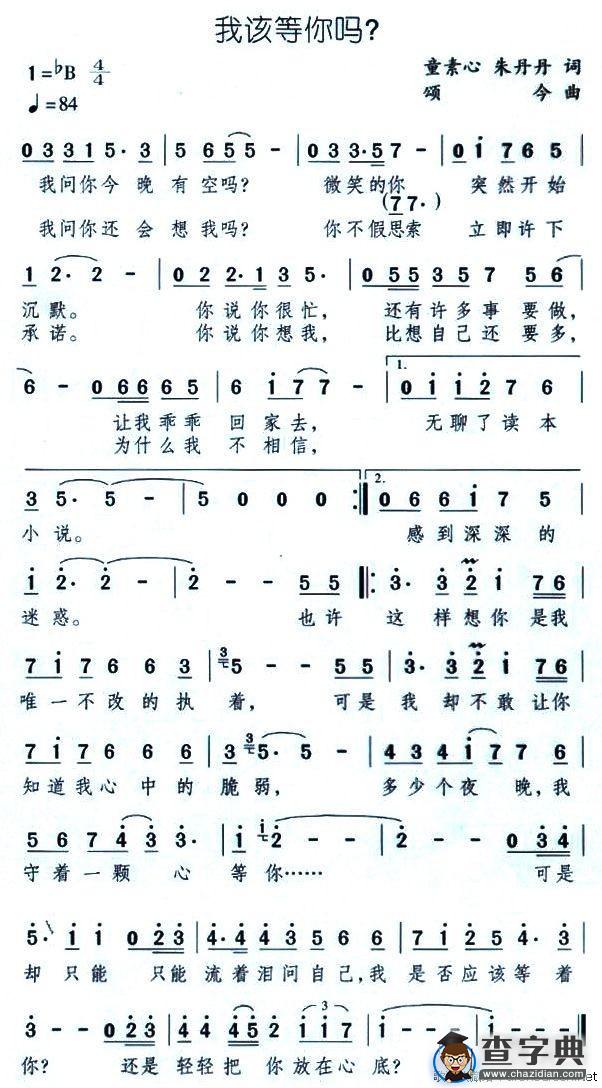 我该等你吗?
1=♭B 4/4 童素心 朱丹丹 词
♩=84 颂 今 曲
0 3 3 1 5· 3 | 5 6 5 5 - | 0 3 3· 5 7 - | 0 1 7 6 5 |
我问你今 晚 有 空吗? 微笑的你 突然开始
(7 7·)
我问你还 会 想 我吗? 你不假思索 立即许下
1 2· 2 - | 0 2 2· 1 3 5· | 0 5 5 3 5 7 5 6 |
沉默。 你说你很忙, 还有许多事 要做,
承诺。 你说你想我, 比想自己还 要多,
6 - 0 6 6 6 5 | 6 1 7 7 - | 1. 0 1 1 2 7 6 |
让我乖乖 回家去, 无聊了读本
为什么我 不相信,
3 5· 5 - | 5 0 0 0 :| 2. 0 6 6 1 7 5 |
小说。 感到深深的
1 2· 2 - | 2 - - 5 5 |: 3· 3 2 1 7 6 |
迷惑。 也许 这 样想你 是我
7 1 7 6 6 3 | 3 5 - - 5 5 | 3· 3 2 1 5 6 |
唯一不改的执 着, 可是 我 却不敢让你
7 1 7 6 6 6 | 3 3 5· 5 - | 4 3 4 1 7 7 6 |
知道我心 中的 脆弱, 多少个夜 晚,我
5 6 7 4 3 3 | 1 1 2 - - | 2 - - 0 3 4 |
守着一颗 心 等 你…… 可是
5· 1 1 0 2 3 | 4· 4 3 2 3 6 6 | 7 7 7 5 1 2 |
却 只能 只能 流着泪问自己,我 是否应该等着
3 - - 0 2 3 | 4 4 4 5 1 1 7 | 1 - - -
你? 还是 轻轻把 你放在心 底?
查字典
www.chazidian.com